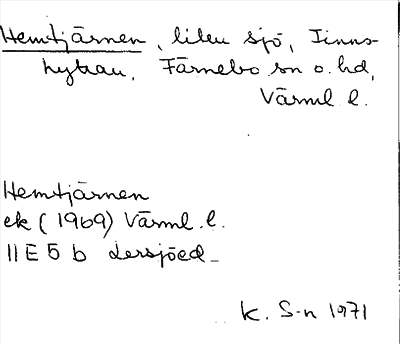 Hemtjärnen, liten sjö, Finns-
hyttan, Färnebo sn o. hd,
Värml l.
Hemtjärnen
ek (1969) Värml. l.
11 E 5 b
K. S-n 1971